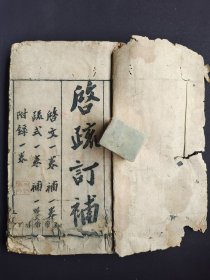 啓疏訂補
啓文一卷 補一卷
疏式一卷 補一卷
附錄一卷